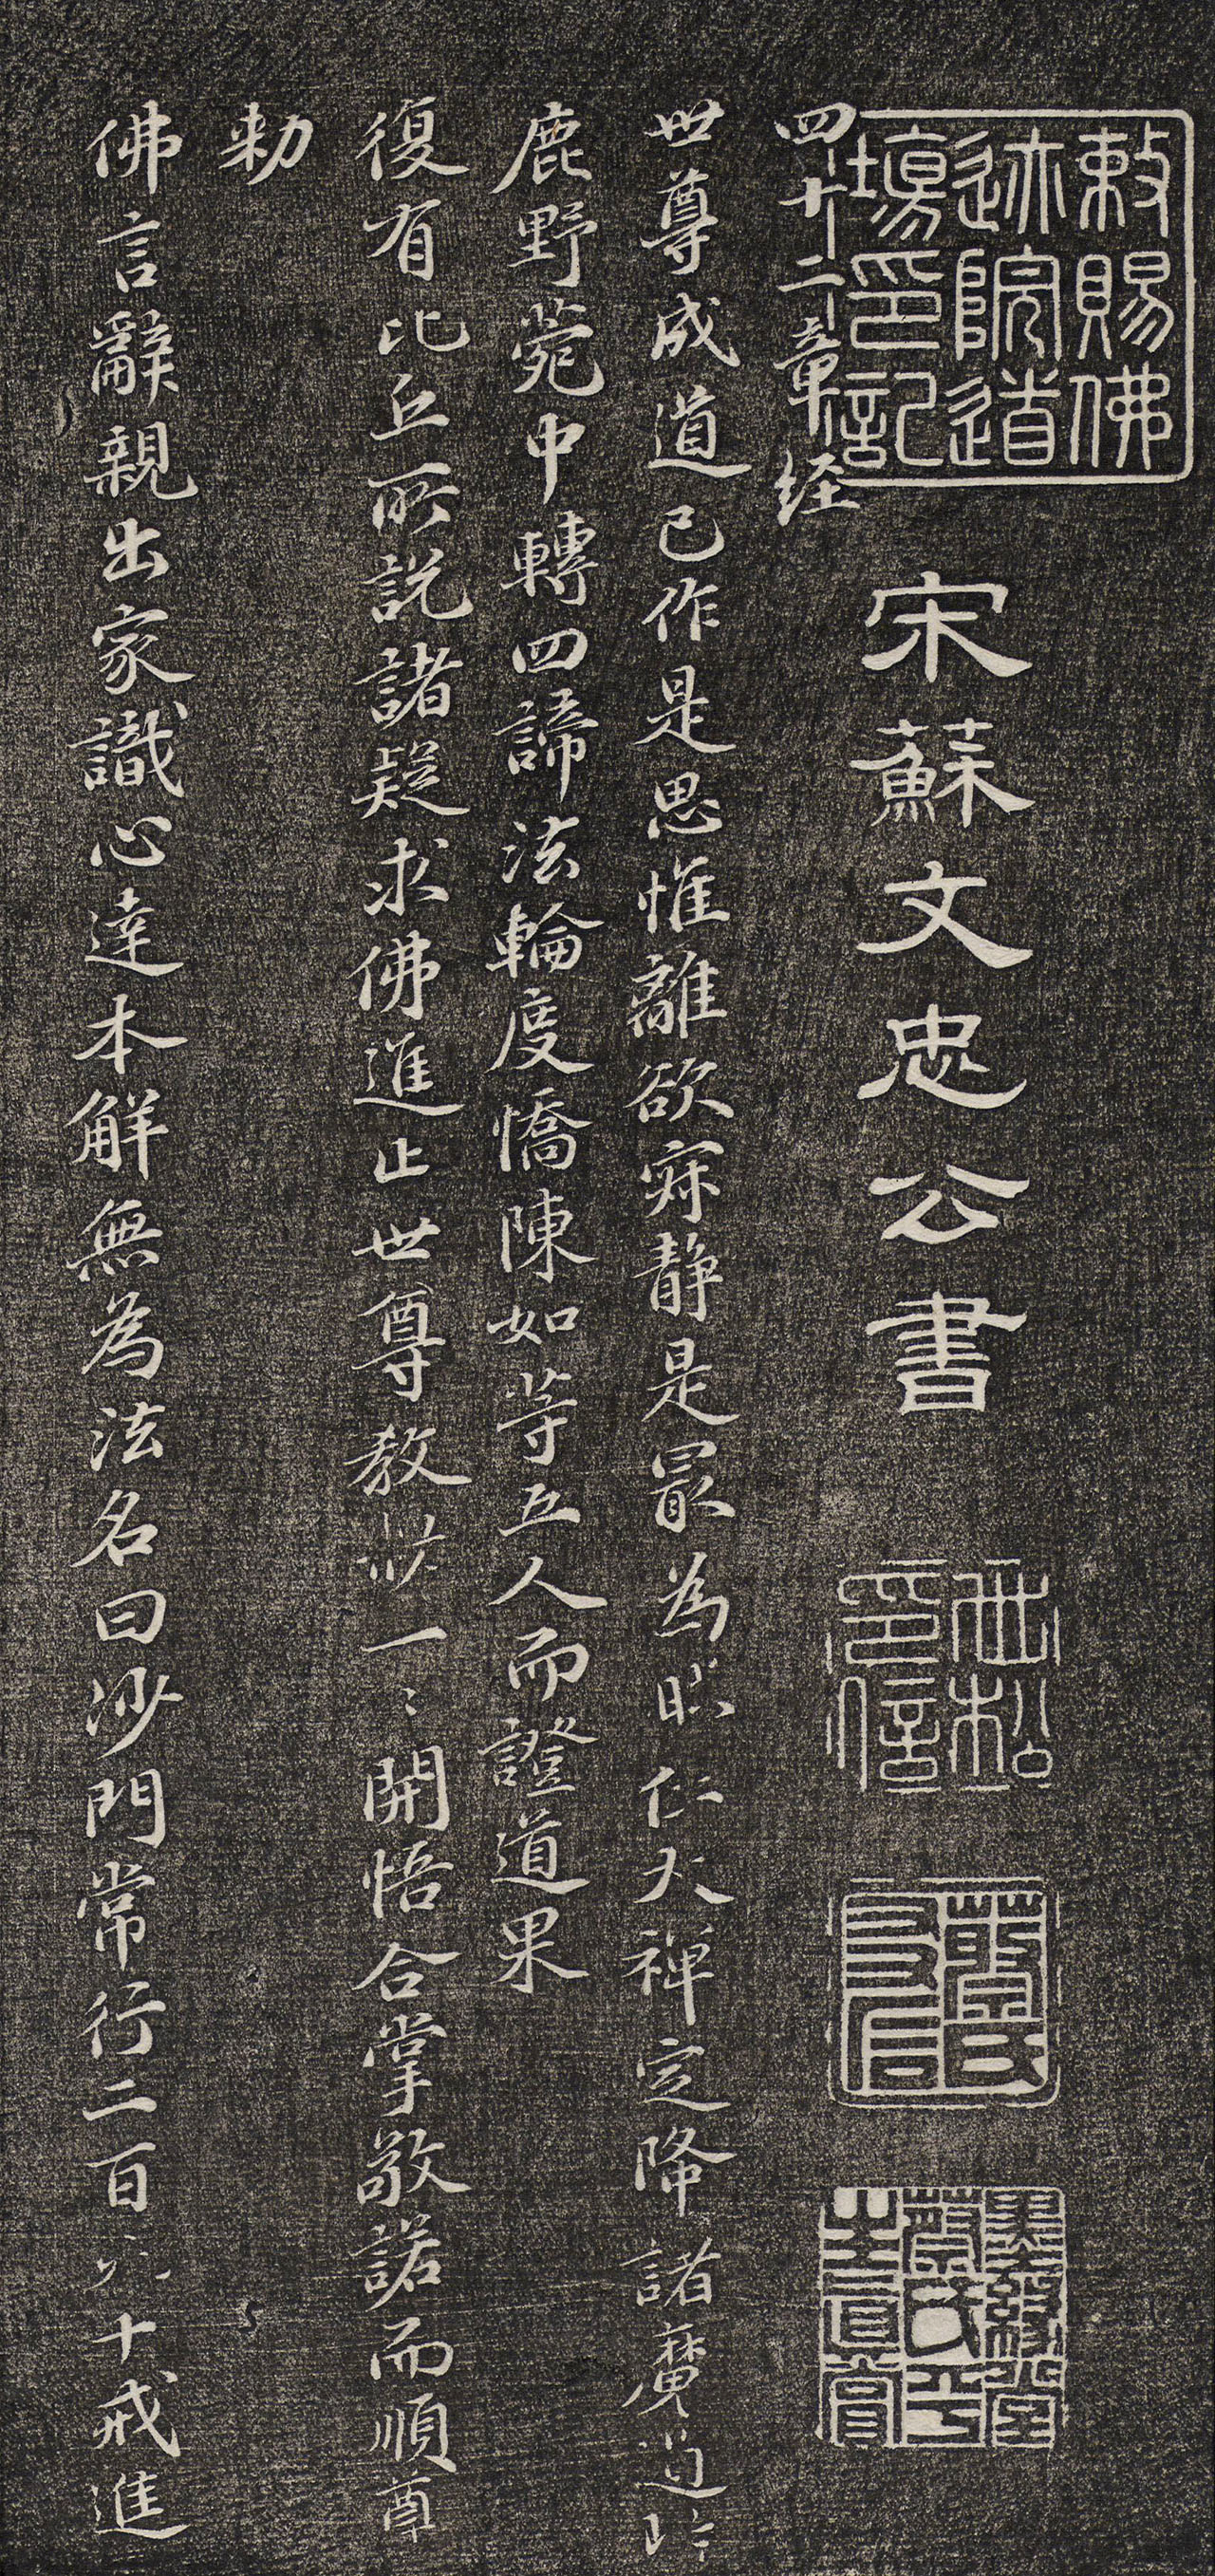 敕賜佛
迹院道
場印記
宋蘇文忠公書
四十二章經
世尊成道已作是思惟離欲寂静是冣為 仁大禪定降諸魔道
鹿野苑中轉四諦法輪度憍陳如等五人而證道果
復有比丘所説諸疑求佛進止世尊教 一〻開悟合掌敬諾而順尊
勅
佛言辭親出家識心達本解無為法名曰沙門常行二百 十戒進